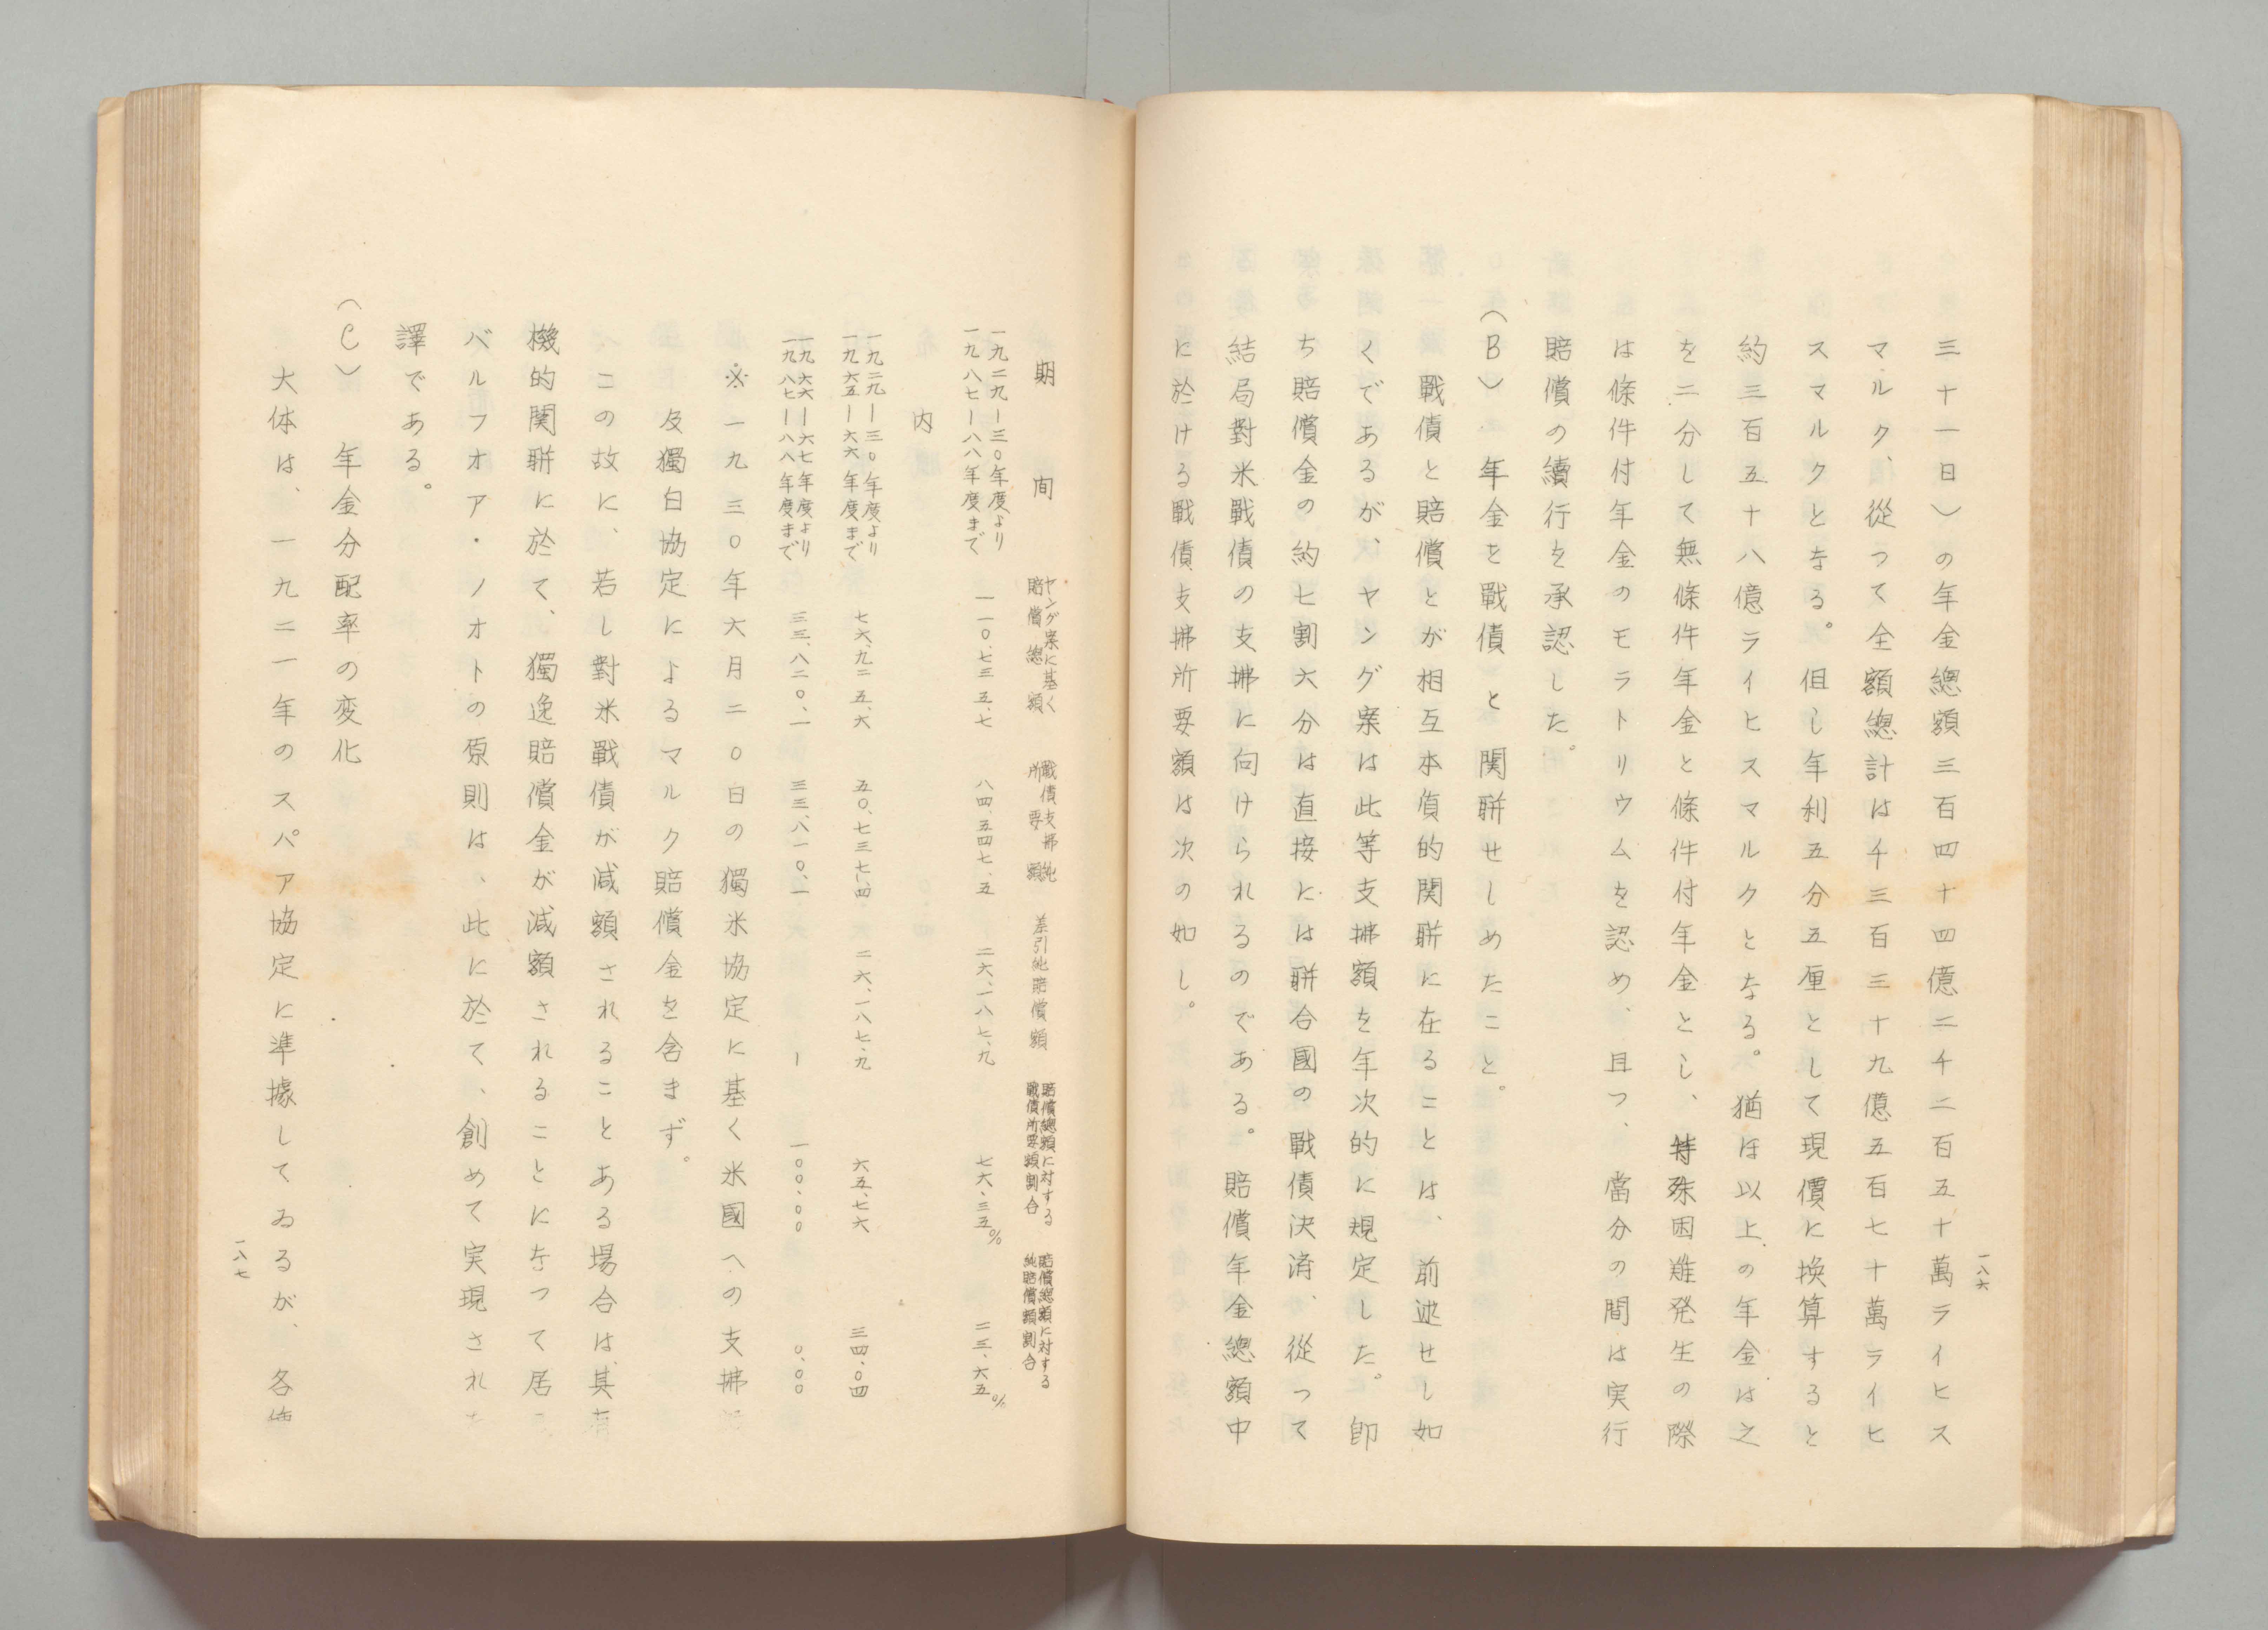 三十一日）の年金總額三百四十四億二千二百五十萬ライヒス
マルク、從つて全額總計は千三百三十九億五百七十萬ライヒ
スマルクとなる。但し年利五分五厘として現價に換算すると
約三百五十八億ライヒスマルクとなる。猶ほ以上の年金は之
を二分して無條件年金と條件付年金とし、特殊困難発生の際
は條件付年金のモラトリウムを認め、且つ、當分の間は実行
賠償の續行を承認した。
（B）年金を戰債と関聨せしめたこと。
戰債と賠償とが相互本質的関聨に在ることは、前述せし如
くであるが、ヤング案は此等支拂額を年次的に規定した。即
ち賠償金の約七割六分は直接には聨合國の戰債決済、從つて
結局對米戰債の支拂に向けられるのである。賠償年金總額中
に於ける戰債支拂所要額は次の如し。
一八六
期間 ヤング案に基く賠償總額 戰債支拂純所要額 差引純賠償額 賠償總額に対する戰債所要額割合 賠償總額に対する純賠償額割合
一九二九―三〇年度より一九八七―八八年度まで 一一〇、七三五、七 八四、五四七、五 二六、一八七、九 七六、三五% 二三、六五%
内
一九二九―三〇年度より一九六五―六六年度まで 七六、九二五、六 五〇、七三七、四 二六、一八七、九 六五、七六 三四、〇四
一九六六―六七年度より一九八七―八八年度まで 三三、八二〇、一 三三、八一〇、一 ― 一〇〇、〇〇 〇、〇〇
※一九三〇年六月二〇日の獨米協定に基く米國への支拂
及獨白協定によるマルク賠償金を含まず。
この故に、若し對米戰債が減額されることある場合は、其
機的関聨に於て、獨逸賠償金が減額されることになつて居
バルフオア・ノオトの原則は、此に於て、創めて実現された
譯である。
（C）年金分配率の変化
大体は、一九二一年のスパア協定に準據してゐるが、各
一八七